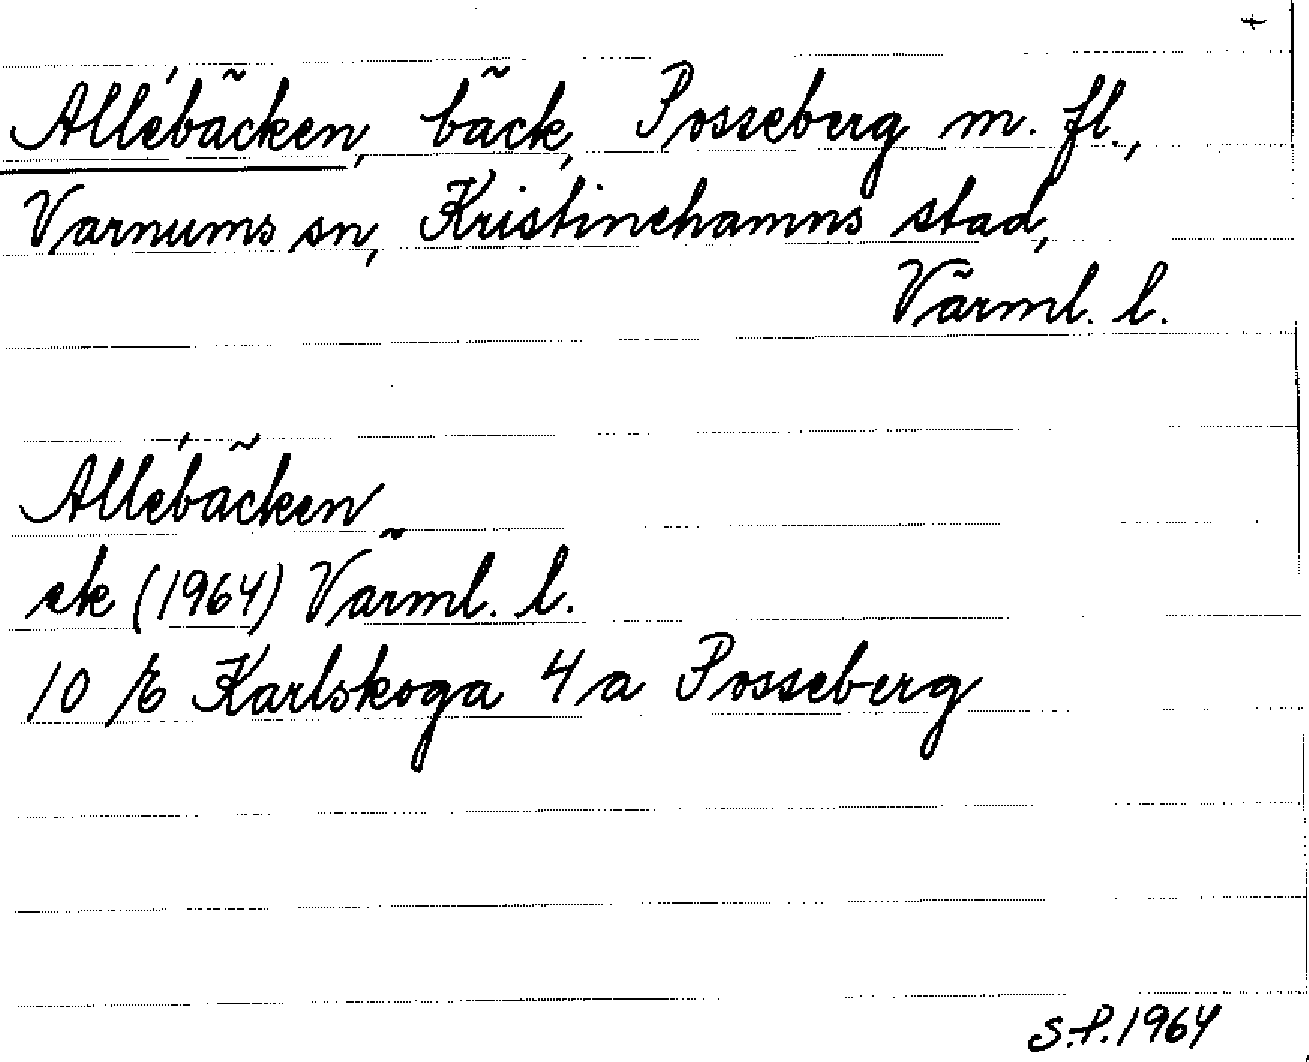 Allébäcken, bäck, Posseberg m. fl.,
Varnums sn, Kristinehamns stad,
Värml. l.
Allébäcken
ek (1964) Värml. l.
10 E Karlskoga 4 a Posseberg
S.P. 1964